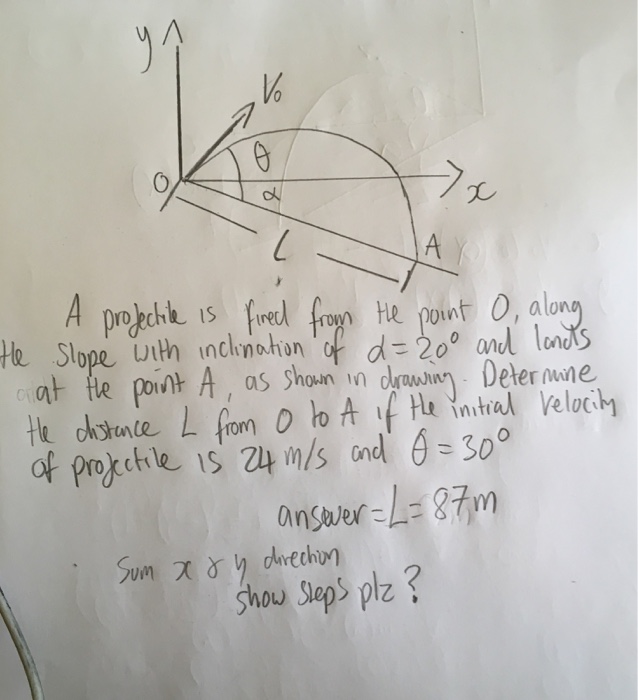 y
V₀
θ
O
α
x
L
A
A projectile is fired from the point O, along
the slope with inclination of α=20° and lands
at the point A, as shown in drawing. Determine
the distance L from O to A if the initial velocity
of projectile is 24 m/s and θ=30°
answer=L=87m
Sum x & y direction
show steps plz?